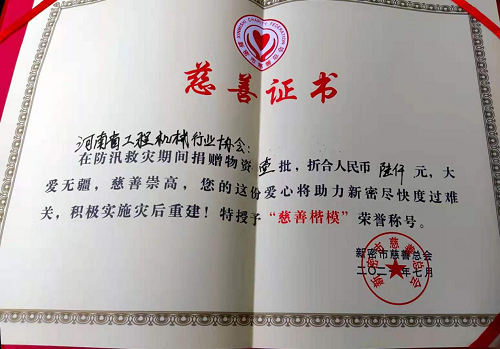 XINMI CHARITY FEDERATION
新密市慈善总会
慈善证书
河南省工程机械行业协会:
在防汛救灾期间捐赠物资壹批,折合人民币 陆仟 元,大
爱无疆,慈善崇高,您的这份爱心将助力新密尽快度过难
关,积极实施灾后重建!特授予“慈善楷模”荣誉称号。
新密市慈善总会
二〇二一年七月
新密市慈善总会